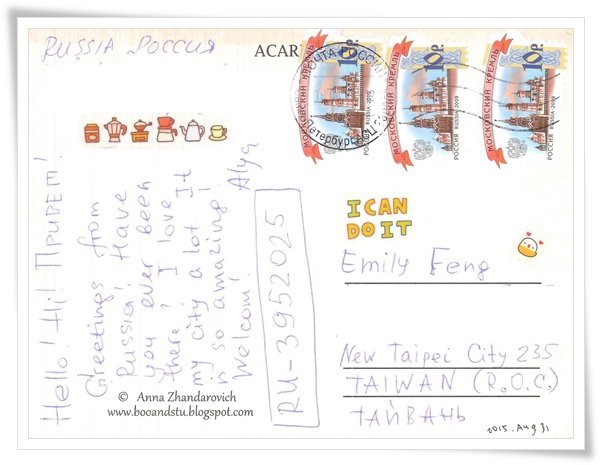 RUSSIA РОССИЯ
ACAR
Hello! Hi! ПРИВЕТ!
Greetings from
Russia! Have
you ever been
there? I love
my city a lot. It
is so amazing!
Welcom! Alya
RU-3952025
МОСКОВСКИЙ КРЕМЛЬ
10 Р.
РОССИЯ RUSSIA 2009
МОСКОВСКИЙ КРЕМЛЬ
10 Р.
РОССИЯ RUSSIA 2009
МОСКОВСКИЙ КРЕМЛЬ
10 Р.
РОССИЯ RUSSIA 2009
ПОЧТА РОССИИ
I CAN
DO IT
Emily Feng
New Taipei City 235
TAIWAN (R.O.C.)
ТАЙВАНЬ
2015. Aug 31
© Anna Zhandarovich
www.booandstu.blogspot.com